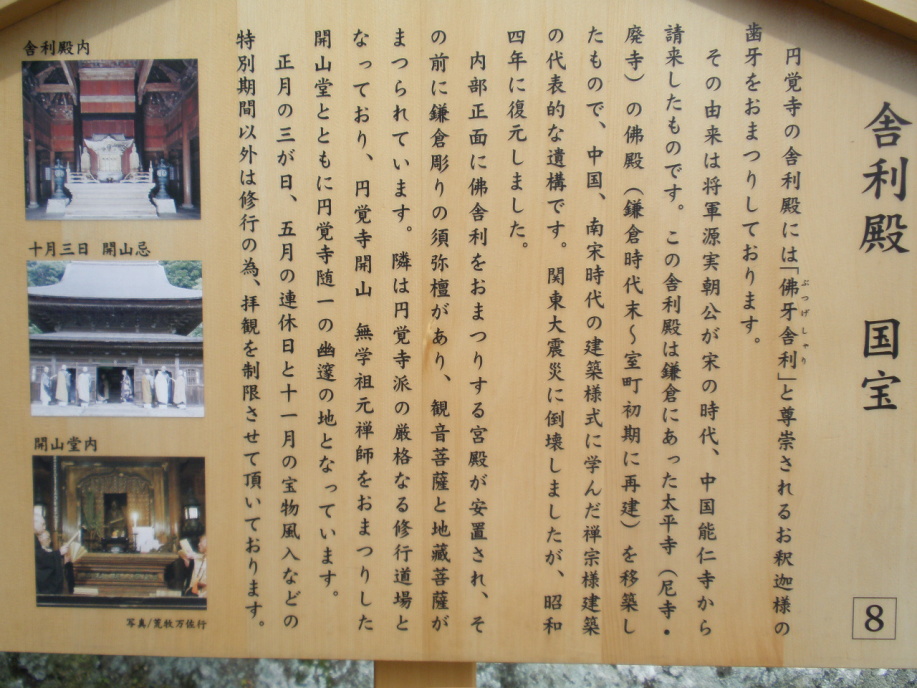 舎利殿　国宝
8
円覚寺の舎利殿には「佛牙舎利」と尊崇されるお釈迦様の
ぶつげしゃり
歯牙をおまつりしております。
その由来は将軍源実朝公が宋の時代、中国能仁寺から
請来したものです。この舎利殿は鎌倉にあった太平寺（尼寺・
廃寺）の佛殿（鎌倉時代末～室町初期に再建）を移築し
たもので、中国、南宋時代の建築様式に学んだ禅宗様建築
の代表的な遺構です。関東大震災に倒壊しましたが、昭和
四年に復元しました。
内部正面に佛舎利をおまつりする宮殿が安置され、そ
の前に鎌倉彫りの須弥壇があり、観音菩薩と地蔵菩薩が
まつられています。隣は円覚寺派の厳格なる修行道場と
なっており、円覚寺開山　無学祖元禅師をおまつりした
開山堂とともに円覚寺随一の幽邃の地となっています。
正月の三が日、五月の連休日と十一月の宝物風入などの
特別期間以外は修行の為、拝観を制限させて頂いております。
舎利殿内
十月三日　開山忌
開山堂内
写真/荒牧万佐行